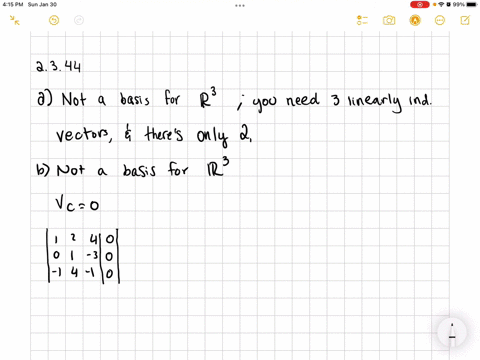 4:15 PM Sun Jan 30
99%
2.3.44
a) Not a basis for ℝ³ ; you need 3 linearly ind.
vectors, & there's only 2.
b) Not a basis for ℝ³
Vc=0
1 2 4 | 0
0 1 -3 | 0
-1 4 -1 | 0